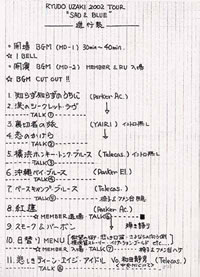 RYUDO UZAKI 2002 TOUR
"SAD & BLUE"
進行表
・開場 BGM (MD-1) 30min〜40min.
☆ 1 BELL
・開演 BGM (MD-2) MEMBER & RU 入場
☆ BGM CUT OUT !!
1. 知らず知らずのうちに (Parker Ac.)
2. 涙のシークレットラヴ
TALK ①
3. 裏切者の旅 (YAIRI) イントロ無し
4. 恋のかけら
TALK ②
5. 横浜ホンキートンク・ブルース (Telecas.) イントロ無し
TALK ③
6. 沖縄ベイ・ブルース (Parker El.)
TALK ④
7. ベースキャンプ・ブルース (Telecas.)
TALK ⑤
8. 紅蓮 (Parker Ac.)
☆ MEMBER 退場 TALK ⑥
9. スモーク & バーボン
☆ MEMBER 入場 TALK ⑦
10. 日替り MENU
TALK ⑧
11. 悲しきティーン・エイジ・アイドル Vo. 和田静男 (Telecas.)
TALK ⑨